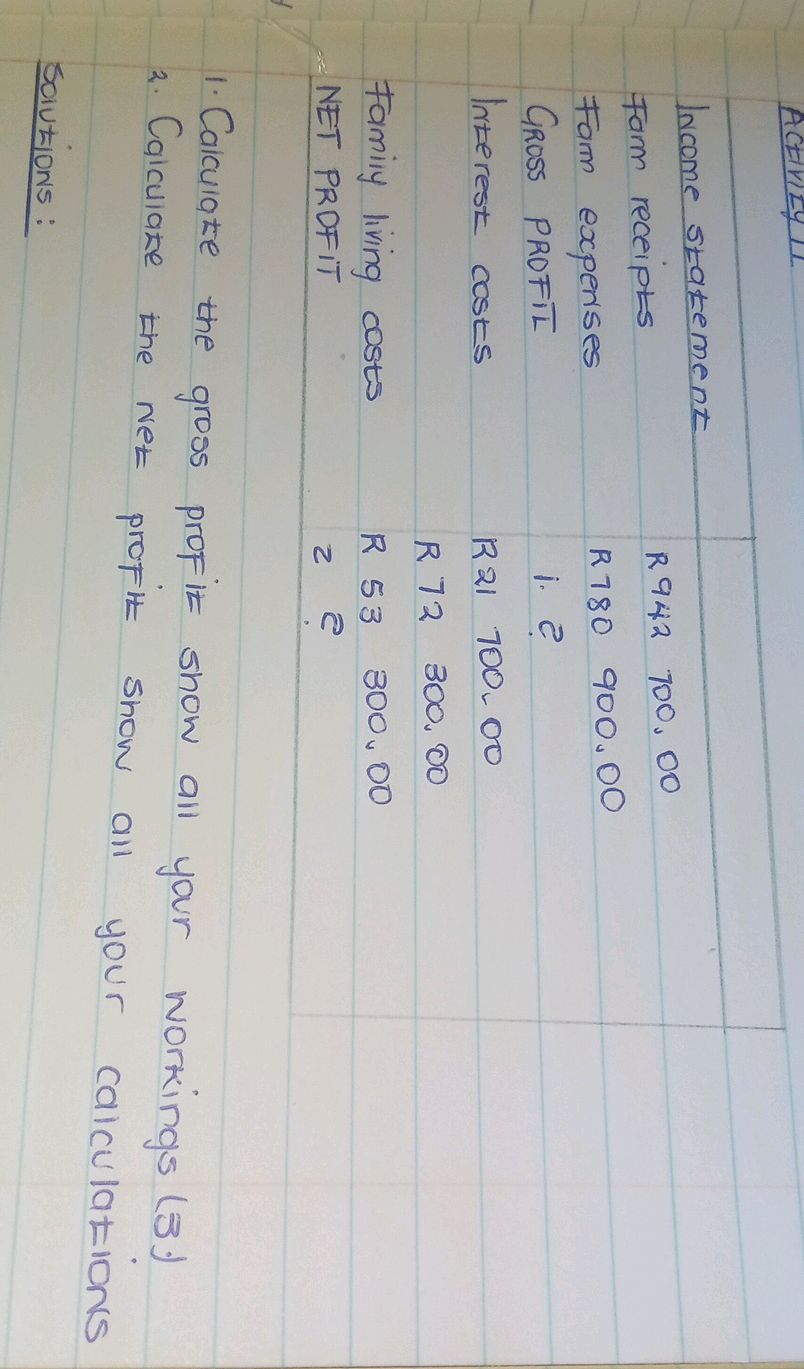 ACTIVITY 11
Income statement
Farm receipts R942 700,00
Farm expenses R780 900,00
GROSS PROFIT 1. ?
Interest costs R21 700,00
R72 300,00
Family living costs R53 300,00
NET PROFIT 2 ?
1. Calculate the gross profit show all your workings (3)
2. Calculate the net profit show all your calculations
Solutions: